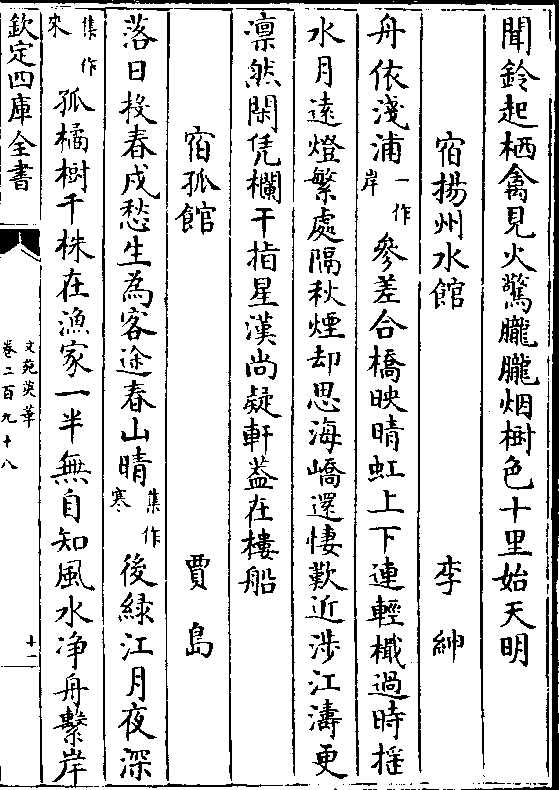 聞鈴起栖禽見火驚朧朧烟樹色十里始天明
宿揚州水館 李紳
舟依淺浦一作岸參差合橋映晴虹上下連輕檝過時揺
水月遠燈繁處隔秋煙却思海嶠還悽歎近涉江濤更
凛然閑凭欄干指星漢尚疑軒蓋在樓船
宿孤館 賈島
落日投春戍愁生為客途春山晴集作寒後緑江月夜深
集作來孤橘樹千株在漁家一半無自知風水净舟繫岸
欽定四庫全書
文苑英華
卷二百九十八
十二